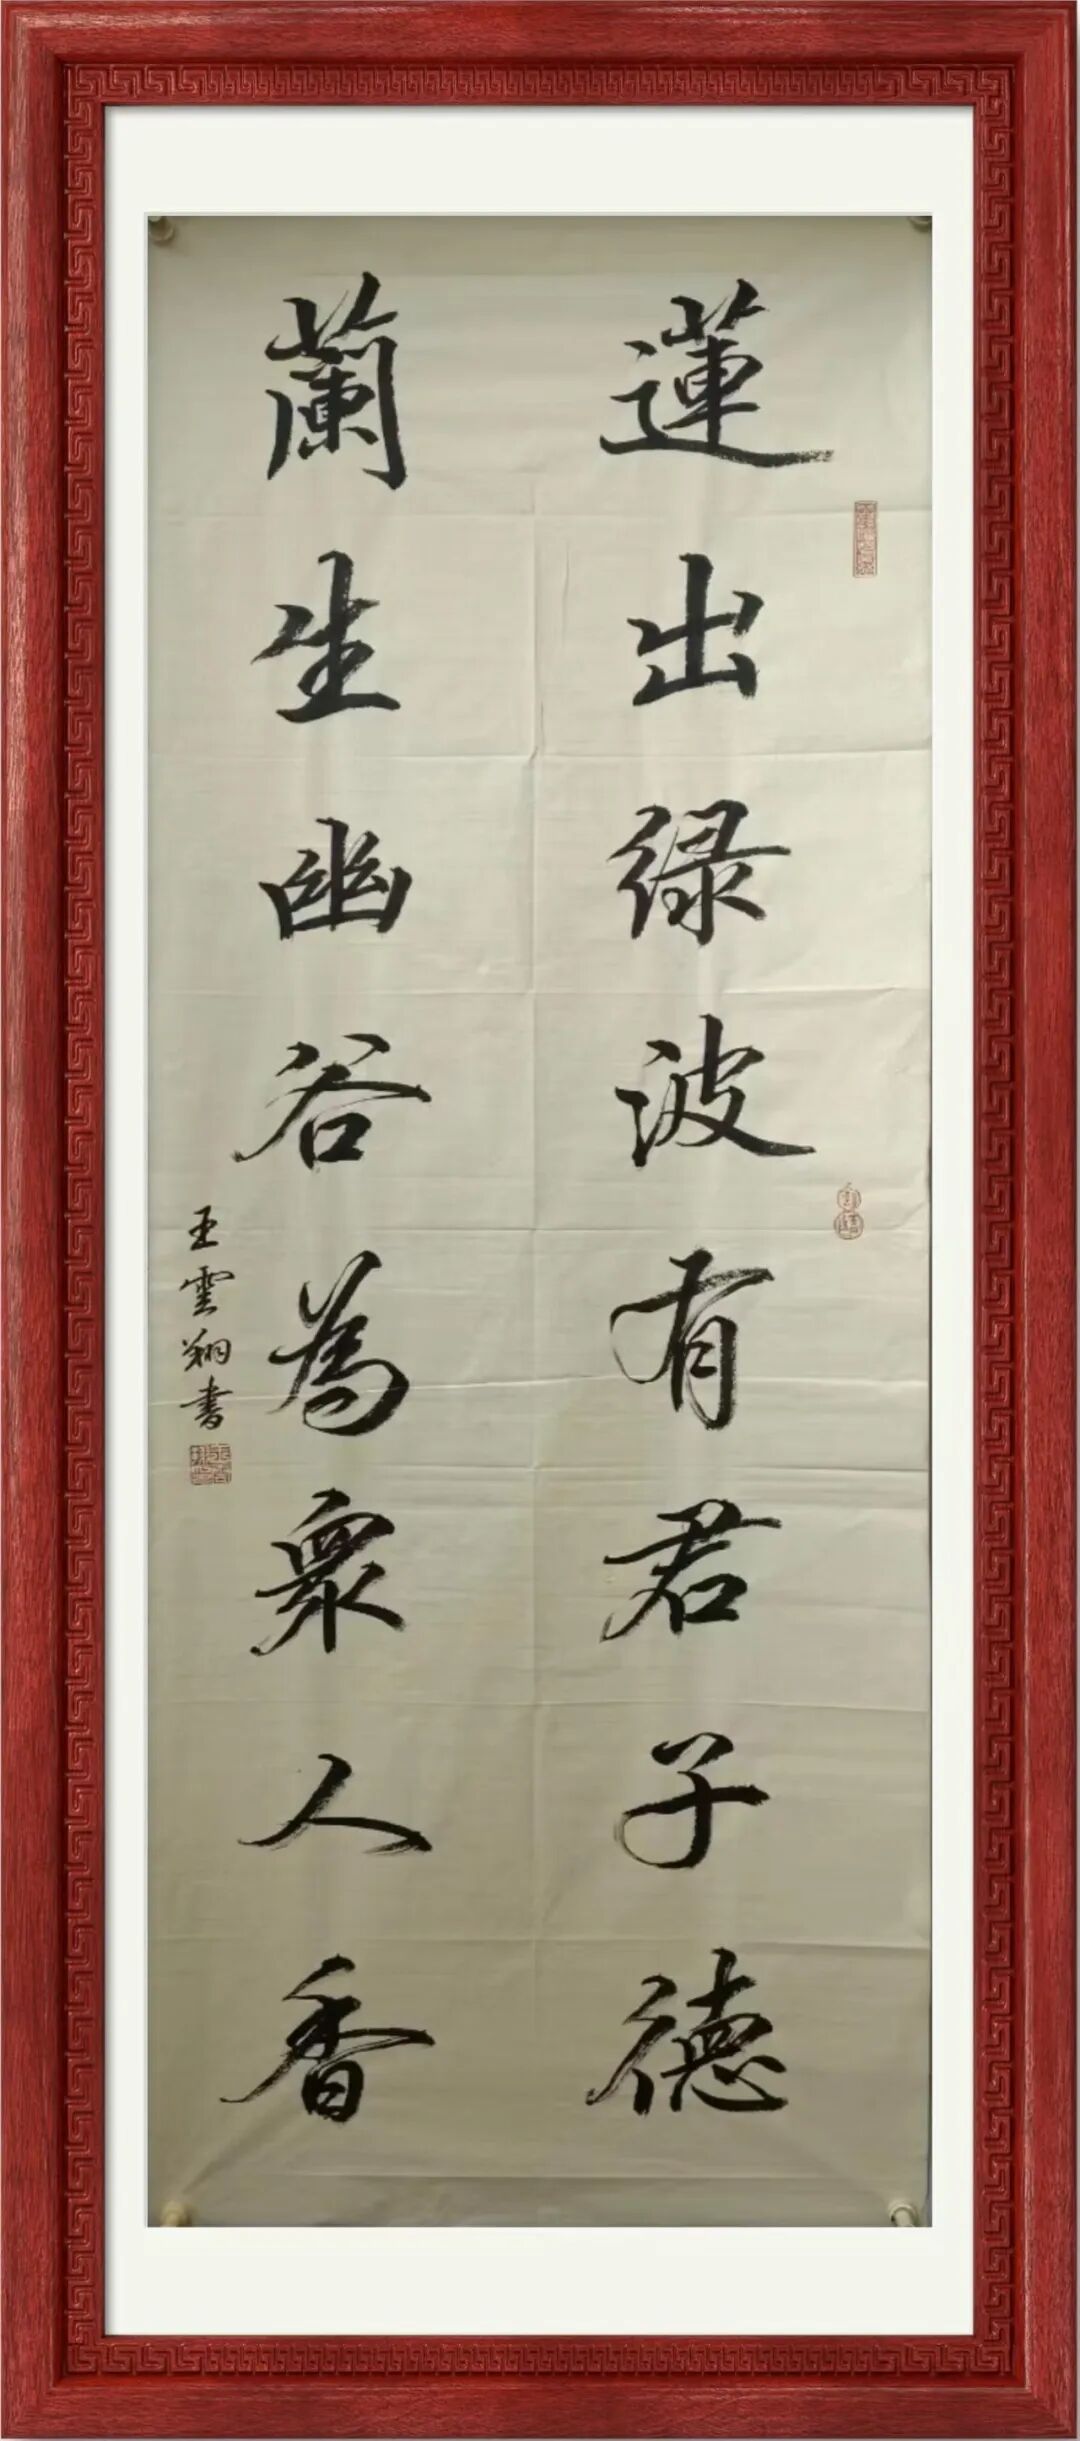 蓮出緑波有君子德
蘭生幽谷為衆人香
王雲翔書